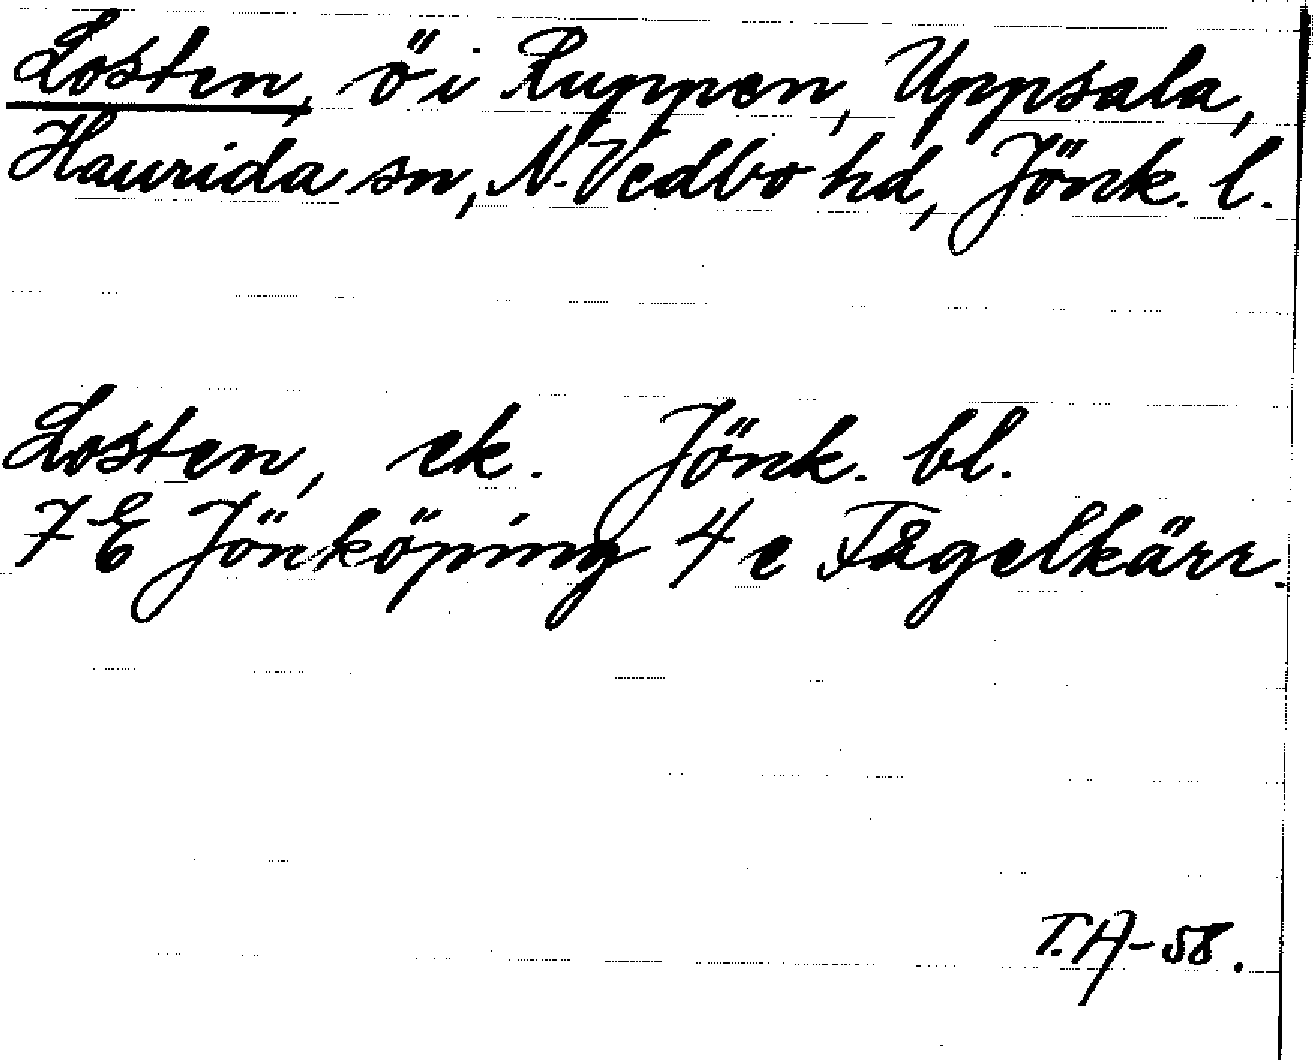 Losten, ö i Ruppen, Uppsala,
Haurida sn, N. Vedbo hd, Jönk. l.
Losten, ek. Jönk. bl.
7 E Jönköping 4 e Fågelkärr.
T.A-58.